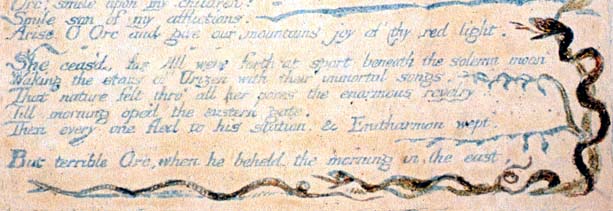 Orc! smile upon my children!
Smile son of my afflictions.
Arise O Orc and give our mountains joy of thy red light.
She ceas'd, for All were forth at sport beneath the solemn moon
Waking the stars of Urizen with their immortal songs.
That nature felt thro' all her pores the enormous revelry
Till morning oped the eastern gate.
Then every one fled to his station. & Enitharmon wept.
But terrible Orc, when he beheld the morning in the east